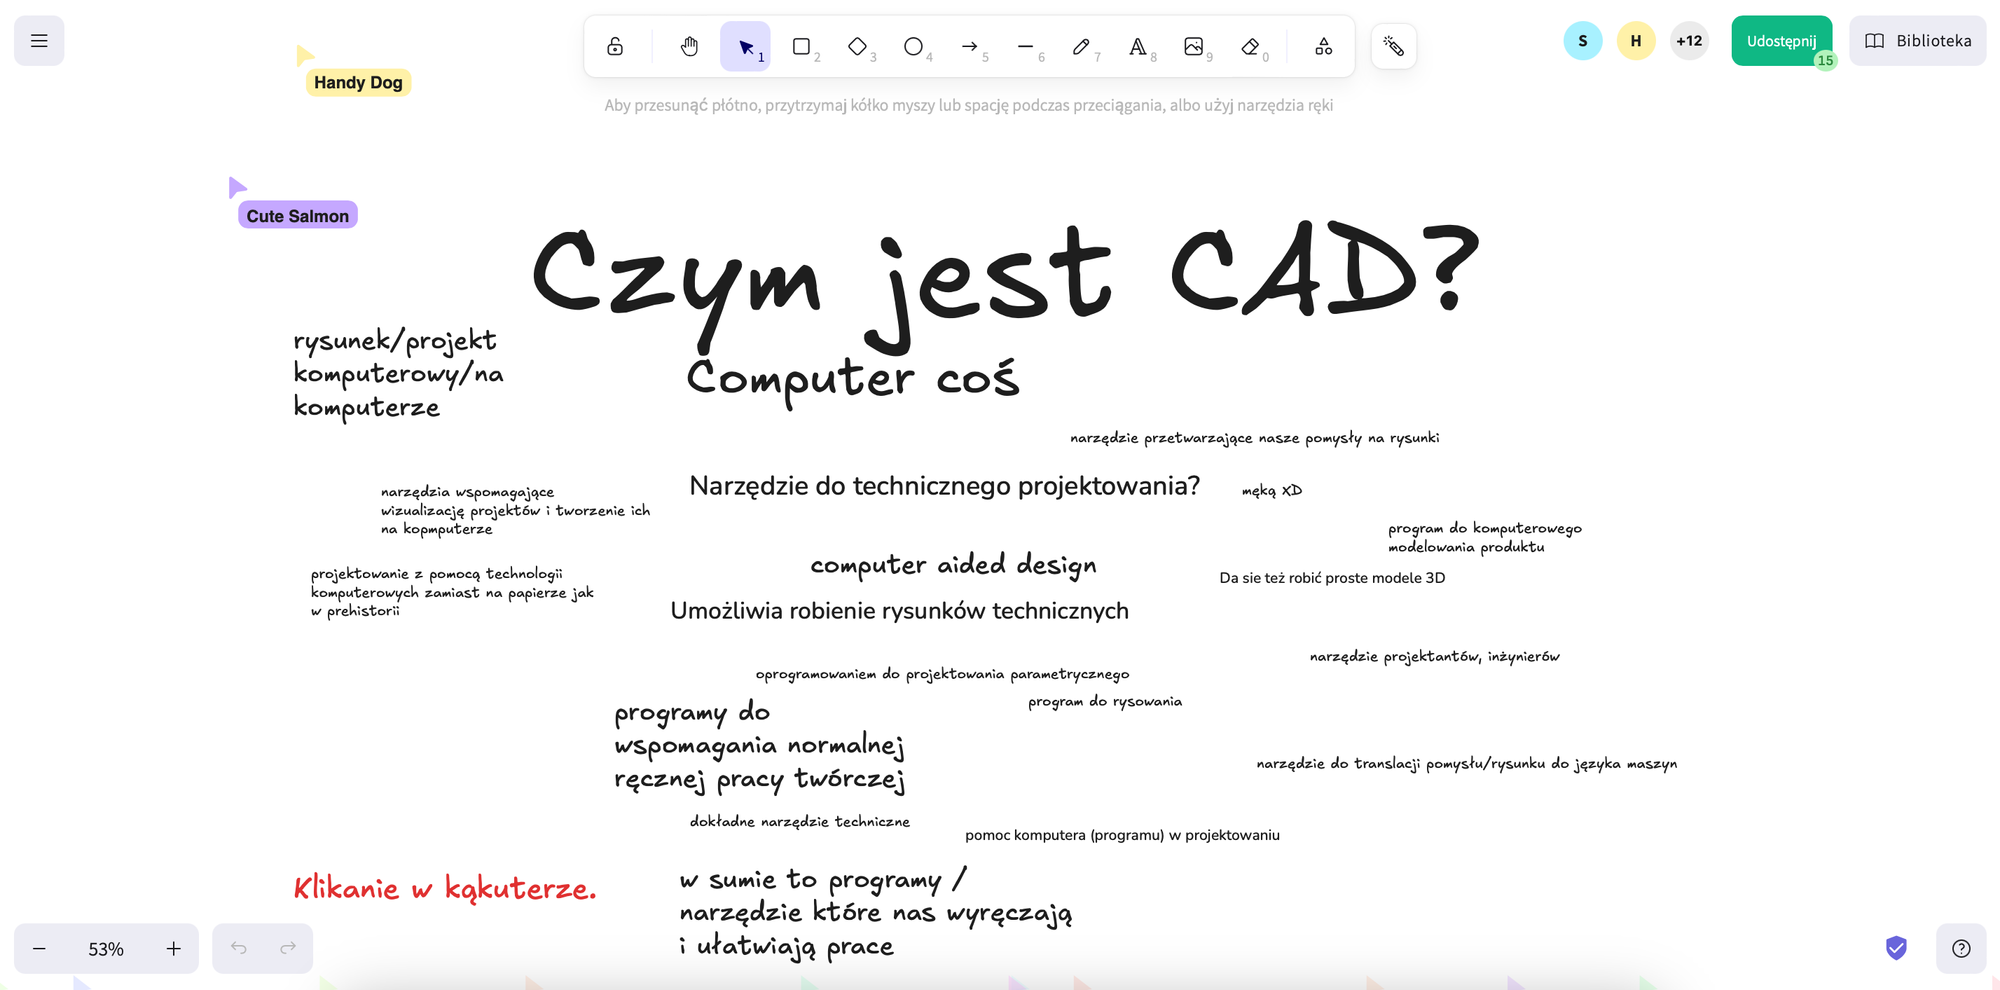 1
2
3
4
5
6
7
8
9
0
S
H
+12
Udostępnij
15
Biblioteka
Handy Dog
Aby przesunąć płótno, przytrzymaj kółko myszy lub spację podczas przeciągania, albo użyj narzędzia ręki
Cute Salmon
Czym jest CAD?
rysunek/projekt
komputerowy/na
komputerze
Computer coś
narzędzie przetwarzające nasze pomysły na rysunki
Narzędzie do technicznego projektowania?
męką XD
narzędzia wspomagające
wizualizację projektów i tworzenie ich
na kopmputerze
program do komputerowego
modelowania produktu
computer aided design
Da sie też robić proste modele 3D
projektowanie z pomocą technologii
komputerowych zamiast na papierze jak
w prehistorii
Umożliwia robienie rysunków technicznych
narzędzie projektantów, inżynierów
oprogramowaniem do projektowania parametrycznego
program do rysowania
programy do
wspomagania normalnej
ręcznej pracy twórczej
narzędzie do translacji pomysłu/rysunku do języka maszyn
dokładne narzędzie techniczne
pomoc komputera (programu) w projektowaniu
Klikanie w kąkuterze.
w sumie to programy /
narzędzie które nas wyręczają
i ułatwiają prace
53%